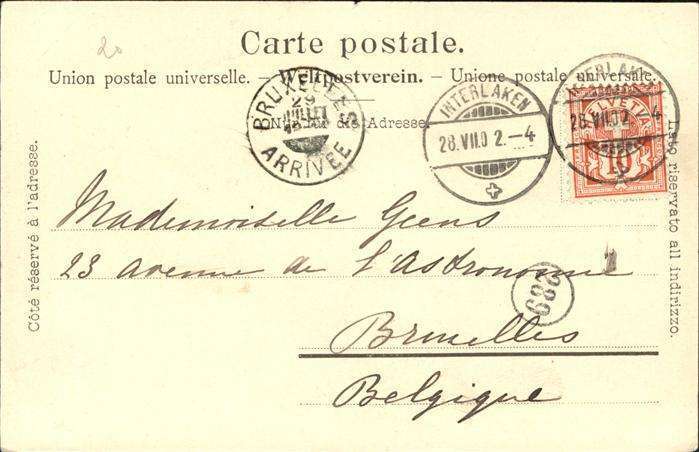 20
Carte postale.
Union postale universelle. — Weltpostverein. — Unione postale universale.
Nur für die Adresse.
Côté réservé à l'adresse.
Lato riservato all indirizzo.
BRUXELLES
29
JUILLET
ARRIVÉE
INTERLAKEN
28.VII.02.–4
INTERLAKEN
28.VII.02.–4
HELVETIA
10
Mademoiselle Geens
23 avenue de l'Astronomie
689
Bruxelles
Belgique